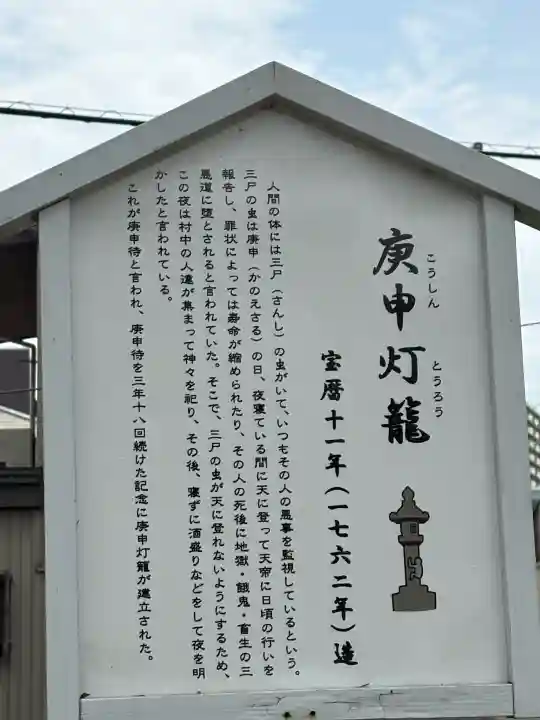 庚申灯籠
こうしん
とうろう
宝暦十一年(一七六二年)造
人間の体には三尸(さんし)の虫がいて、いつもその人の悪事を監視しているという。
三尸の虫は庚申(かのえさる)の日、夜寝ている間に天に登って天帝に日頃の行いを
報告し、罪状によっては寿命が縮められたり、その人の死後に地獄・餓鬼・畜生の三
悪道に堕とされると言われていた。そこで、三尸の虫が天に登れないようにするため、
この夜は村中の人達が集まって神々を祀り、その後、寝ずに酒盛りなどをして夜を明
かしたと言われている。
これが庚申待と言われ、庚申待を三年十八回続けた記念に庚申灯籠が建立された。